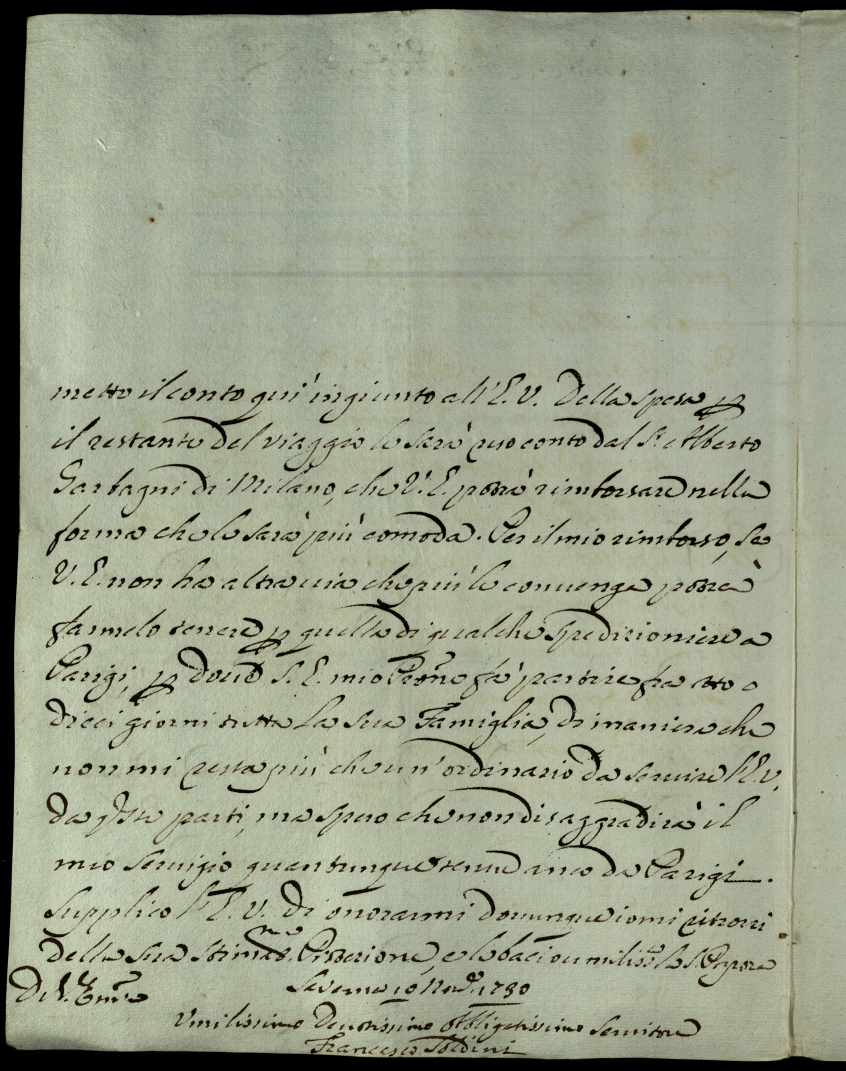 metto il conto quì ingiunto all'E. V. Della spesa p
il restante del viaggio le sarà reso conto dal S.r Alberto
Garbagni di Milano, che V. E. potrà rimborsare nella
forma che le sarà più comoda. Per il mio rimborso, se
V. E. non ha altra via che più le convenga potrà
farmelo tenere p quella di qualche spedizioniere a
Parigi, p dove S. E. mio Pro͠ne fà partire fra otto o
dieci giorni tutta la sua Famiglia, di maniera che
non mi resta più che un' ordinario da servire l'E. V.
da q̃ste parti, ma spero che non disaggradirà il
mio servigio quantunque tenue anco da Parigi.
Supplico l'E. V. di onorarmi dovunque io mi ritrovi
della sua stimad.ma Protezione, e le bacio umiliss.e la S. Porpora
Di V. Em͠za
10 Nov.e 1730
Umilissimo Devotissimo Obbligatissimo Servitore
Francesco